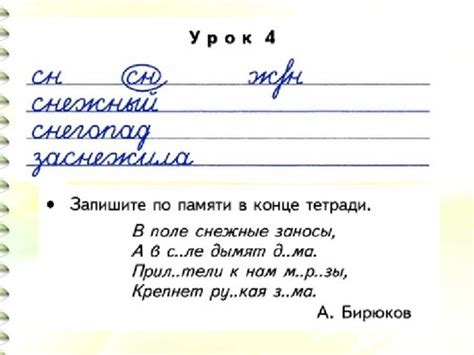 Урок 4
сн сн жн
снежный
снегопад
заснежила
• Запишите по памяти в конце тетради.
В поле снежные заносы,
А в с..ле дымят д..ма.
Прил..тели к нам м..р..зы,
Крепнет ру..кая з..ма.
А. Бирюков